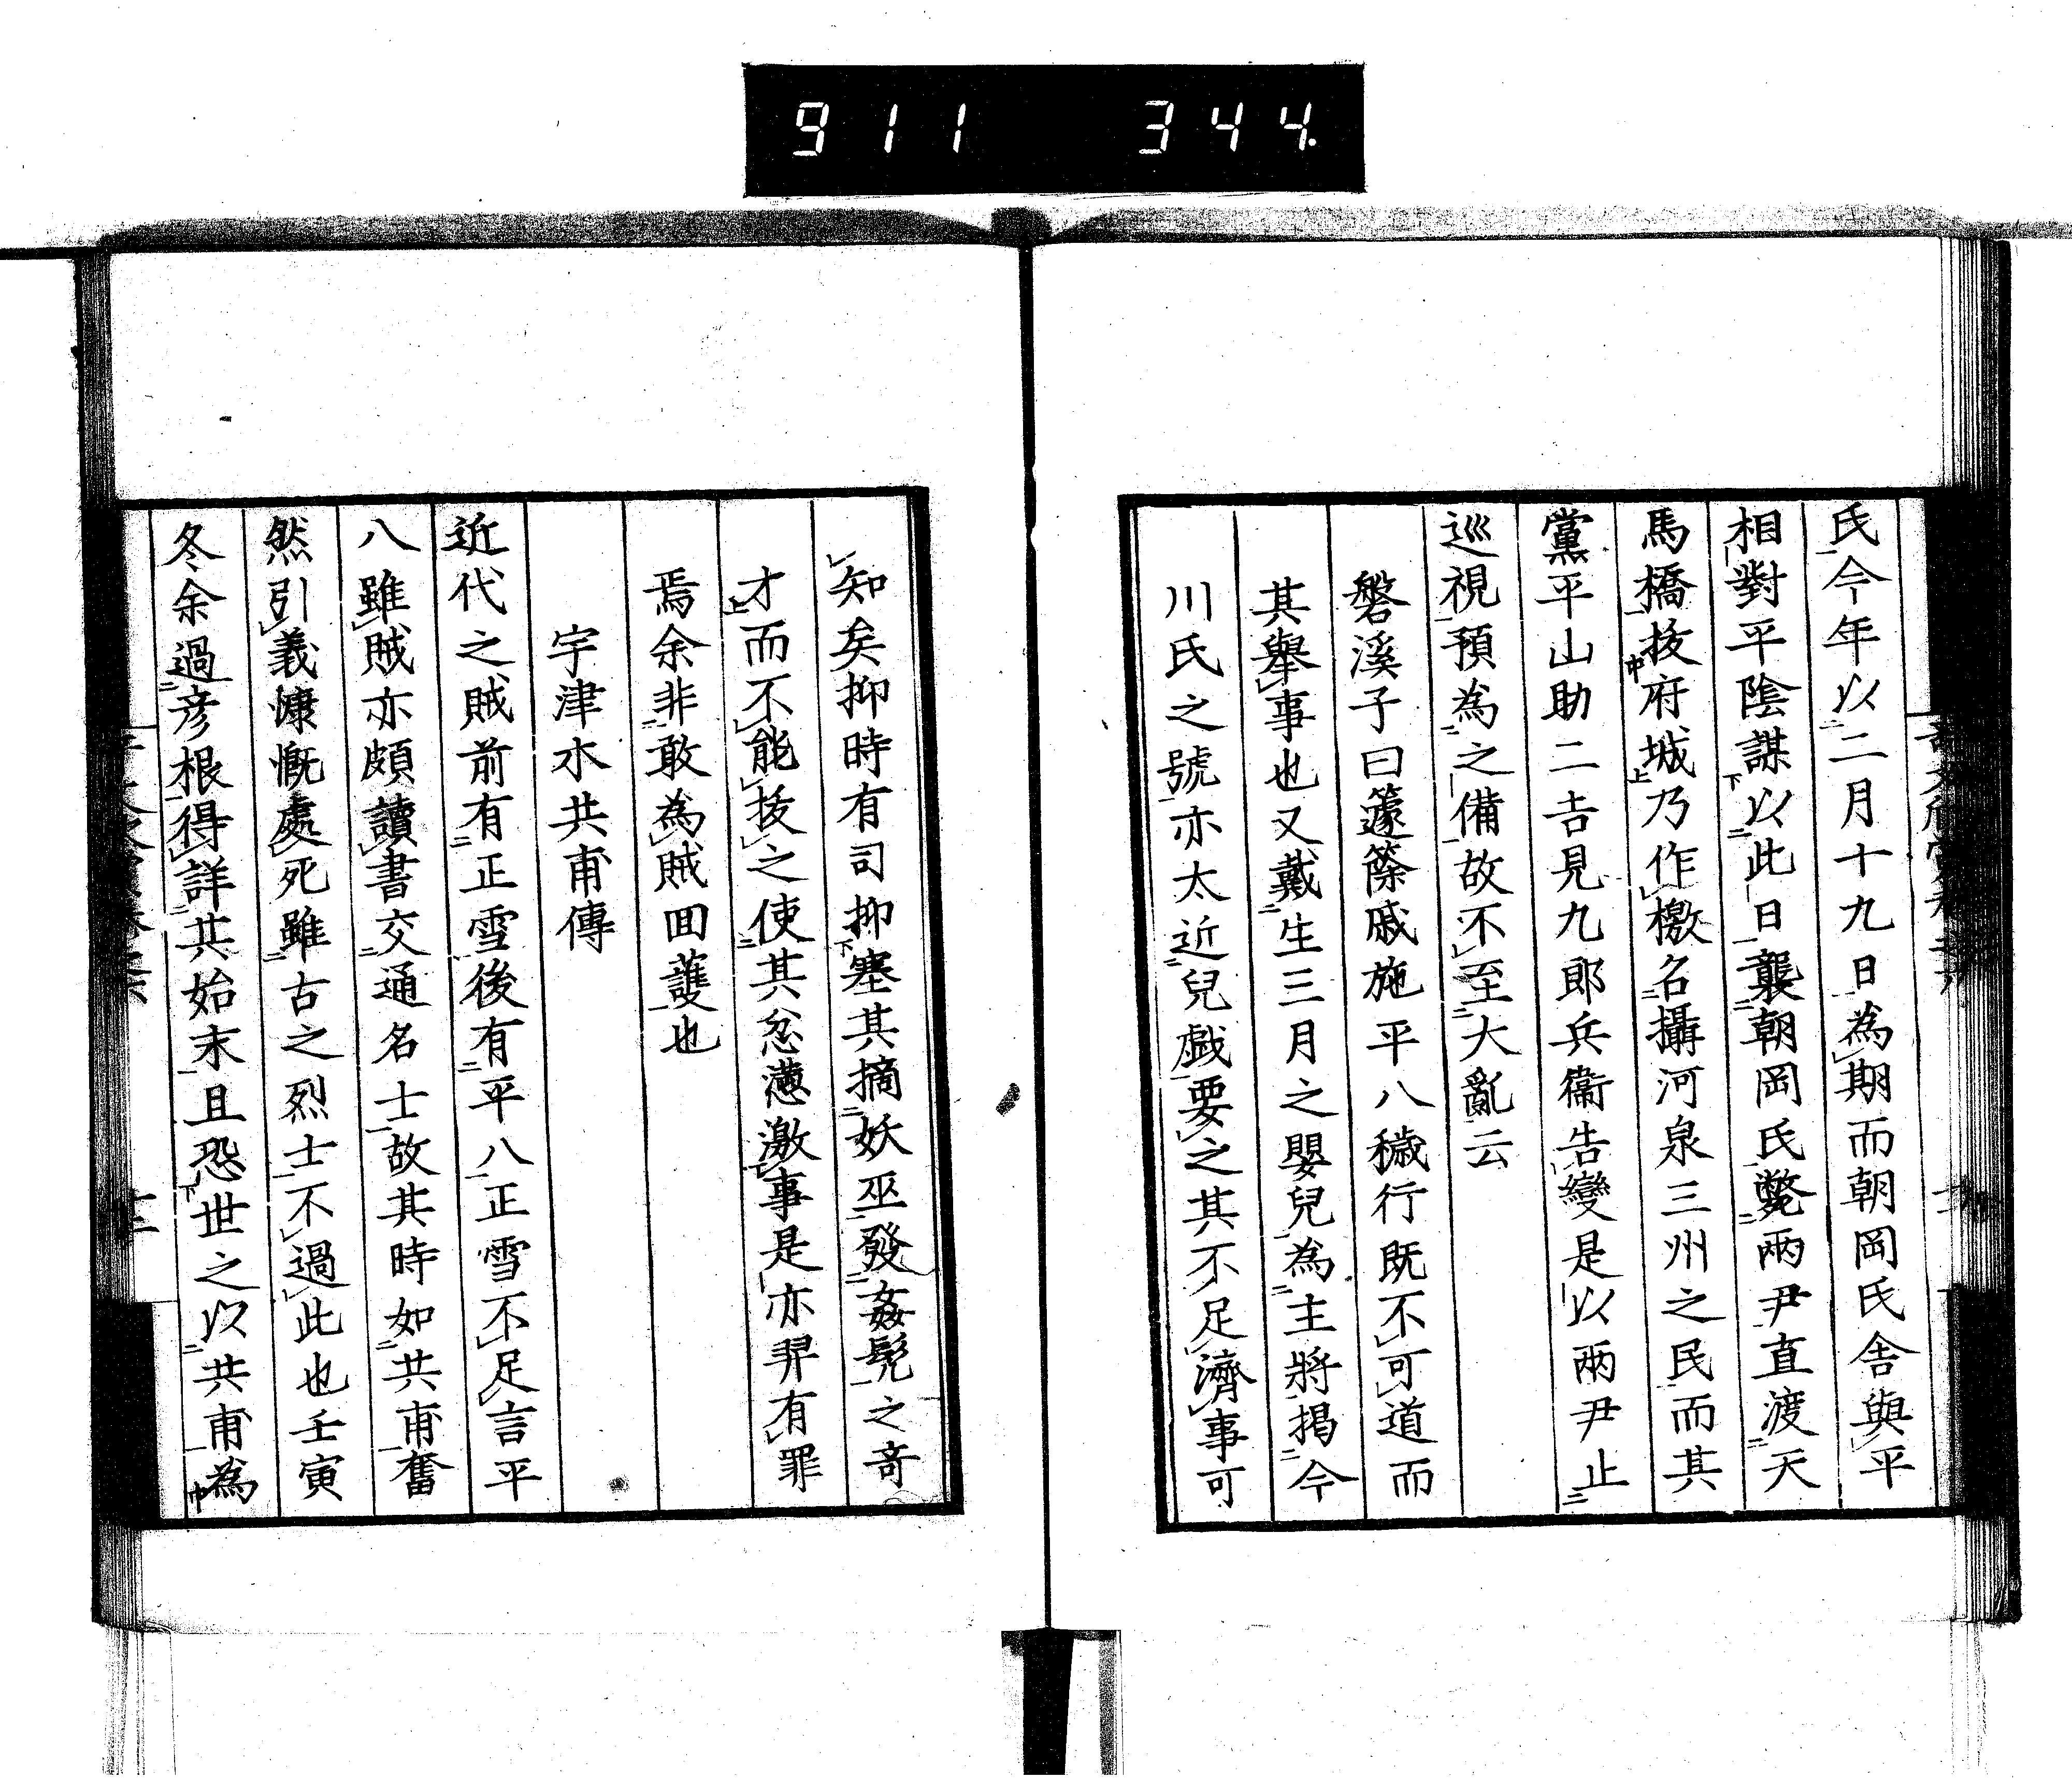 911 344.
氏今年以二月十九日為期而朝岡氏舎與平
相對平陰謀以此日襲朝岡氏斃兩尹直渡天
馬橋抜府城乃作檄名攝河泉三州之民而其
黨平山助二吉見九郎兵衞告變是以兩尹止
巡視預為之備故不至大亂云
磐溪子曰籧篨戚施平八穢行既不可道而
其舉事也又戴生三月之嬰兒為主將揭今
川氏之號亦太近兒戯要之其不足濟事可
知矣抑時有司抑塞其摘妖巫發姦髡之奇
才而不能抜之使其忿懣激事是亦羿有罪
焉余非敢為賊回護也
宇津水共甫傳
近代之賊前有正雪後有平八正雪不足言平
八雖賊亦頗讀書交通名士故其時如共甫奮
然引義慷慨處死雖古之烈士不過此也壬寅
冬余過彦根得詳其始末且恐世之以共甫為